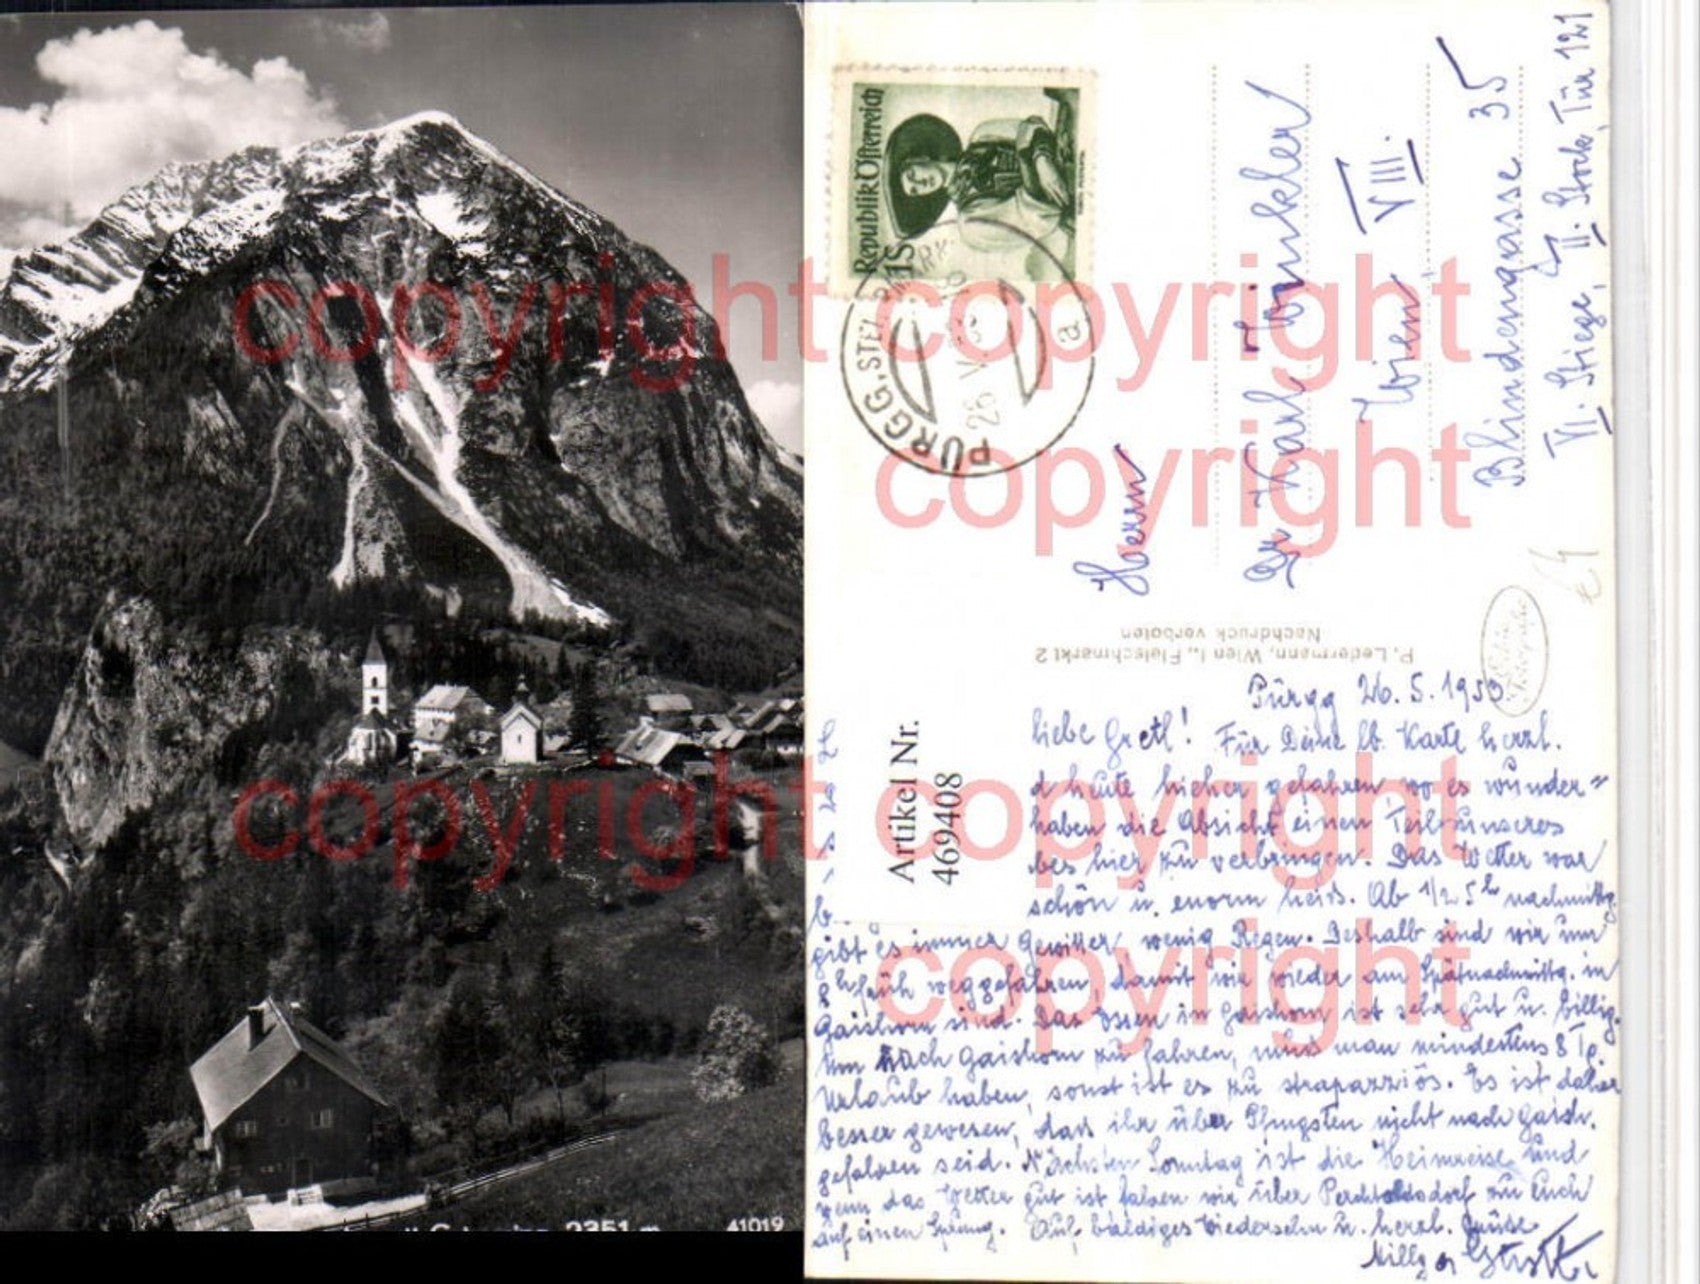 2351 m
41019
Republik Österreich
1S
PÜRGG, STEIERMARK
26. V. 53
a
Herrn
Dr Karl Winkler
Wien VIII.
Blindengasse 35
VI. Stiege, II. Stock, Tür 121
P. Ledermann, Wien I., Fleischmarkt 2
Nachdruck verboten
Artikel Nr.
469408
Pürgg 26.5.1953.
Liebe Gretl! Für Deine lb. Karte herzl.
heute hieher gefahren, wo es wunder=
haben die Absicht einen Teil unseres
hier zu verbringen. Das Wetter war
schön u. enorm heiss. Ab 1/2 5h nachmittg.
gibt es immer Gewitter, wenig Regen. Deshalb sind wir um
8h früh weggefahren, damit wir wieder am Spätnachmittg. in
Gaishorn sind. Das Essen in Gaishorn ist sehr gut u. billig.
Um nach Gaishorn zu fahren, muss man mindestens 8 Tg.
Urlaub haben, sonst ist es zu strapazziös. Es ist daher
besser gewesen, dass ihr über Pfingsten nicht nach Gaish.
gefahren seid. Nächsten Sonntag ist die Heimreise und
wenn das Wetter gut ist fahren wir über Perchtoldsdorf zu Euch
auf einen Sprung. Auf baldiges Wiedersehn u. herzl. Grüsse
copyright
copyright
copyright
copyright
copyright
copyright